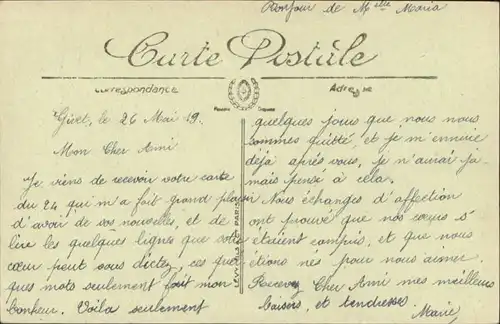 Bonjour de Melle Maria
Carte Postale
Correspondance
Adresse
Givet, le 26 Mai 19.
Mon Cher Ami
Je viens de recevoir votre carte
du 24 qui m'a fait grand plaisir
d'avoir de vos nouvelles, et de
lire les quelques lignes que votre
cœur peut vous dicter, ces quel
ques mots seulement fait mon
bonheur. Voila seulement
quelques jours que nous nous
sommes quitté, et je m'ennuie
déjà après vous, je n'aurai ja-
mais pensé à cela.
Nous échanges d'affection
ont prouvé que nos cœurs s'
étaient compris, et que nous
étions nés pour nous aimer.
Recevez Cher Ami mes meilleurs
baisers, et tendresse.
Marie